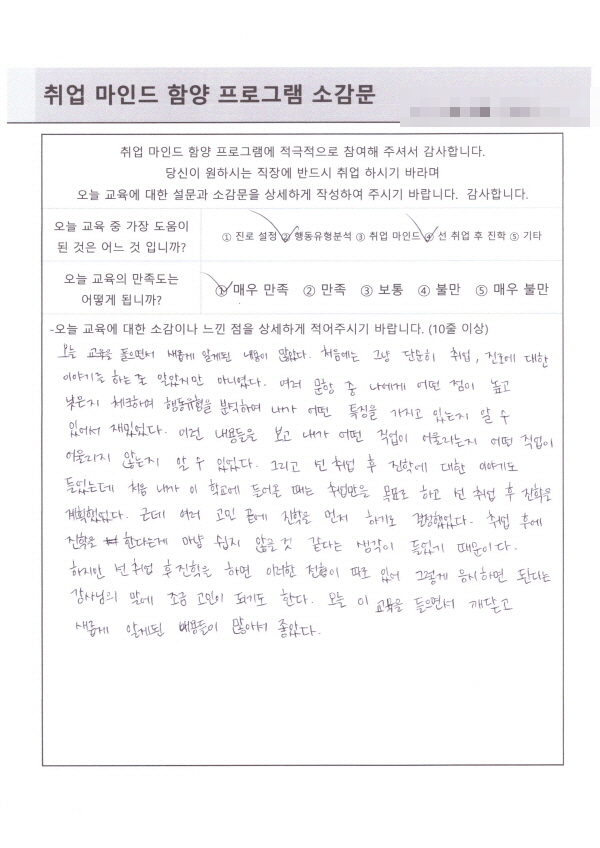 취업 마인드 함양 프로그램 소감문
취업 마인드 함양 프로그램에 적극적으로 참여해 주셔서 감사합니다.
당신이 원하시는 직장에 반드시 취업 하시기 바라며
오늘 교육에 대한 설문과 소감문을 상세하게 작성하여 주시기 바랍니다. 감사합니다.
오늘 교육 중 가장 도움이
된 것은 어느 것 입니까?
① 진로 설정 ② 행동유형분석 ③ 취업 마인드 ④ 선 취업 후 진학 ⑤ 기타
오늘 교육의 만족도는
어떻게 됩니까?
① 매우 만족 ② 만족 ③ 보통 ④ 불만 ⑤ 매우 불만
-오늘 교육에 대한 소감이나 느낀 점을 상세하게 적어주시기 바랍니다. (10줄 이상)
오늘 교육을 들으면서 새롭게 알게된 내용이 많았다. 처음에는 그냥 단순히 취업, 진로에 대한
이야기를 하는 줄 알았지만 아니였다. 여러 문항 중 나에게 어떤 점이 높고
낮은지 체크하며 행동유형을 분석하며 내가 어떤 특징을 가지고 있는지 알 수
있어서 재밌었다. 이런 내용들을 보고 내가 어떤 직업이 어울리는지 어떤 직업이
어울리지 않는지 알 수 있었다. 그리고 선 취업 후 진학에 대한 이야기도
들었는데 처음 내가 이 학교에 들어온 때는 취업만을 목표로 하고 선 취업 후 진학을
계획했었다. 근데 여러 고민 끝에 진학을 먼저 하기로 결정했었다. 취업 후에
진학을 한다는게 마냥 쉽지 않을 것 같다는 생각이 들었기 때문이다.
하지만 선 취업 후 진학을 하면 이러한 전형이 따로 있어 그렇게 응시하면 된다는
강사님의 말에 조금 고민이 되기도 한다. 오늘 이 교육을 들으면서 깨닫고
새롭게 알게된 내용들이 많아서 좋았다.